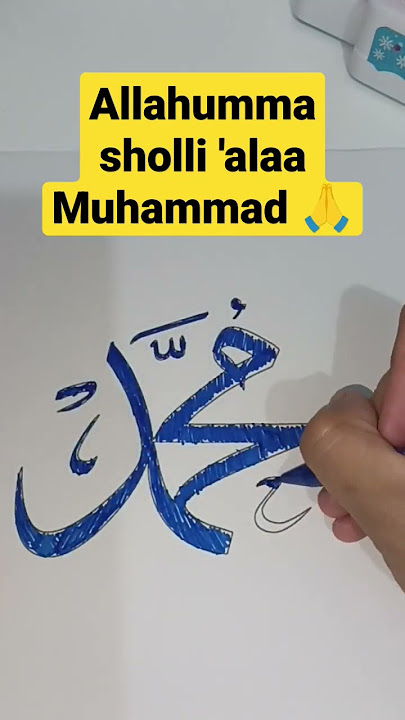 Allahumma
sholli 'alaa
Muhammad 🙏
مُحَمَّد